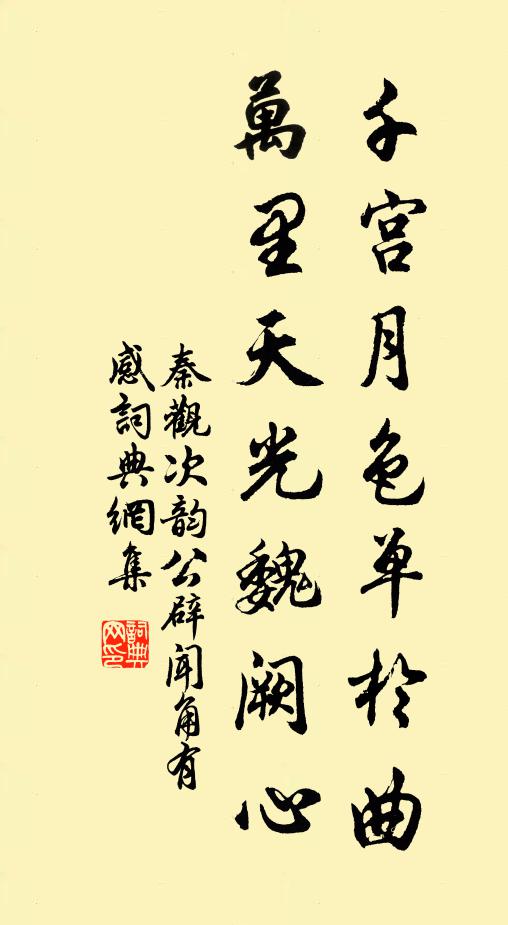 千宫月色单於曲
萬里天光魏闕心
秦觀次韵公辟闻角有
感詞典網集
詞典
网印